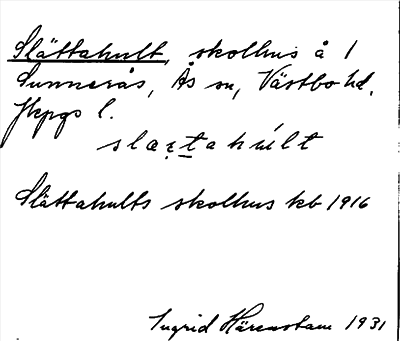 Slättahult, skolhus å 1
Sunnerås, Ås sn, Västbo hd,
Jkpgs l.
slaætahúlt
Slättahults skolhus kb 1916
Ingrid Härenstam 1931